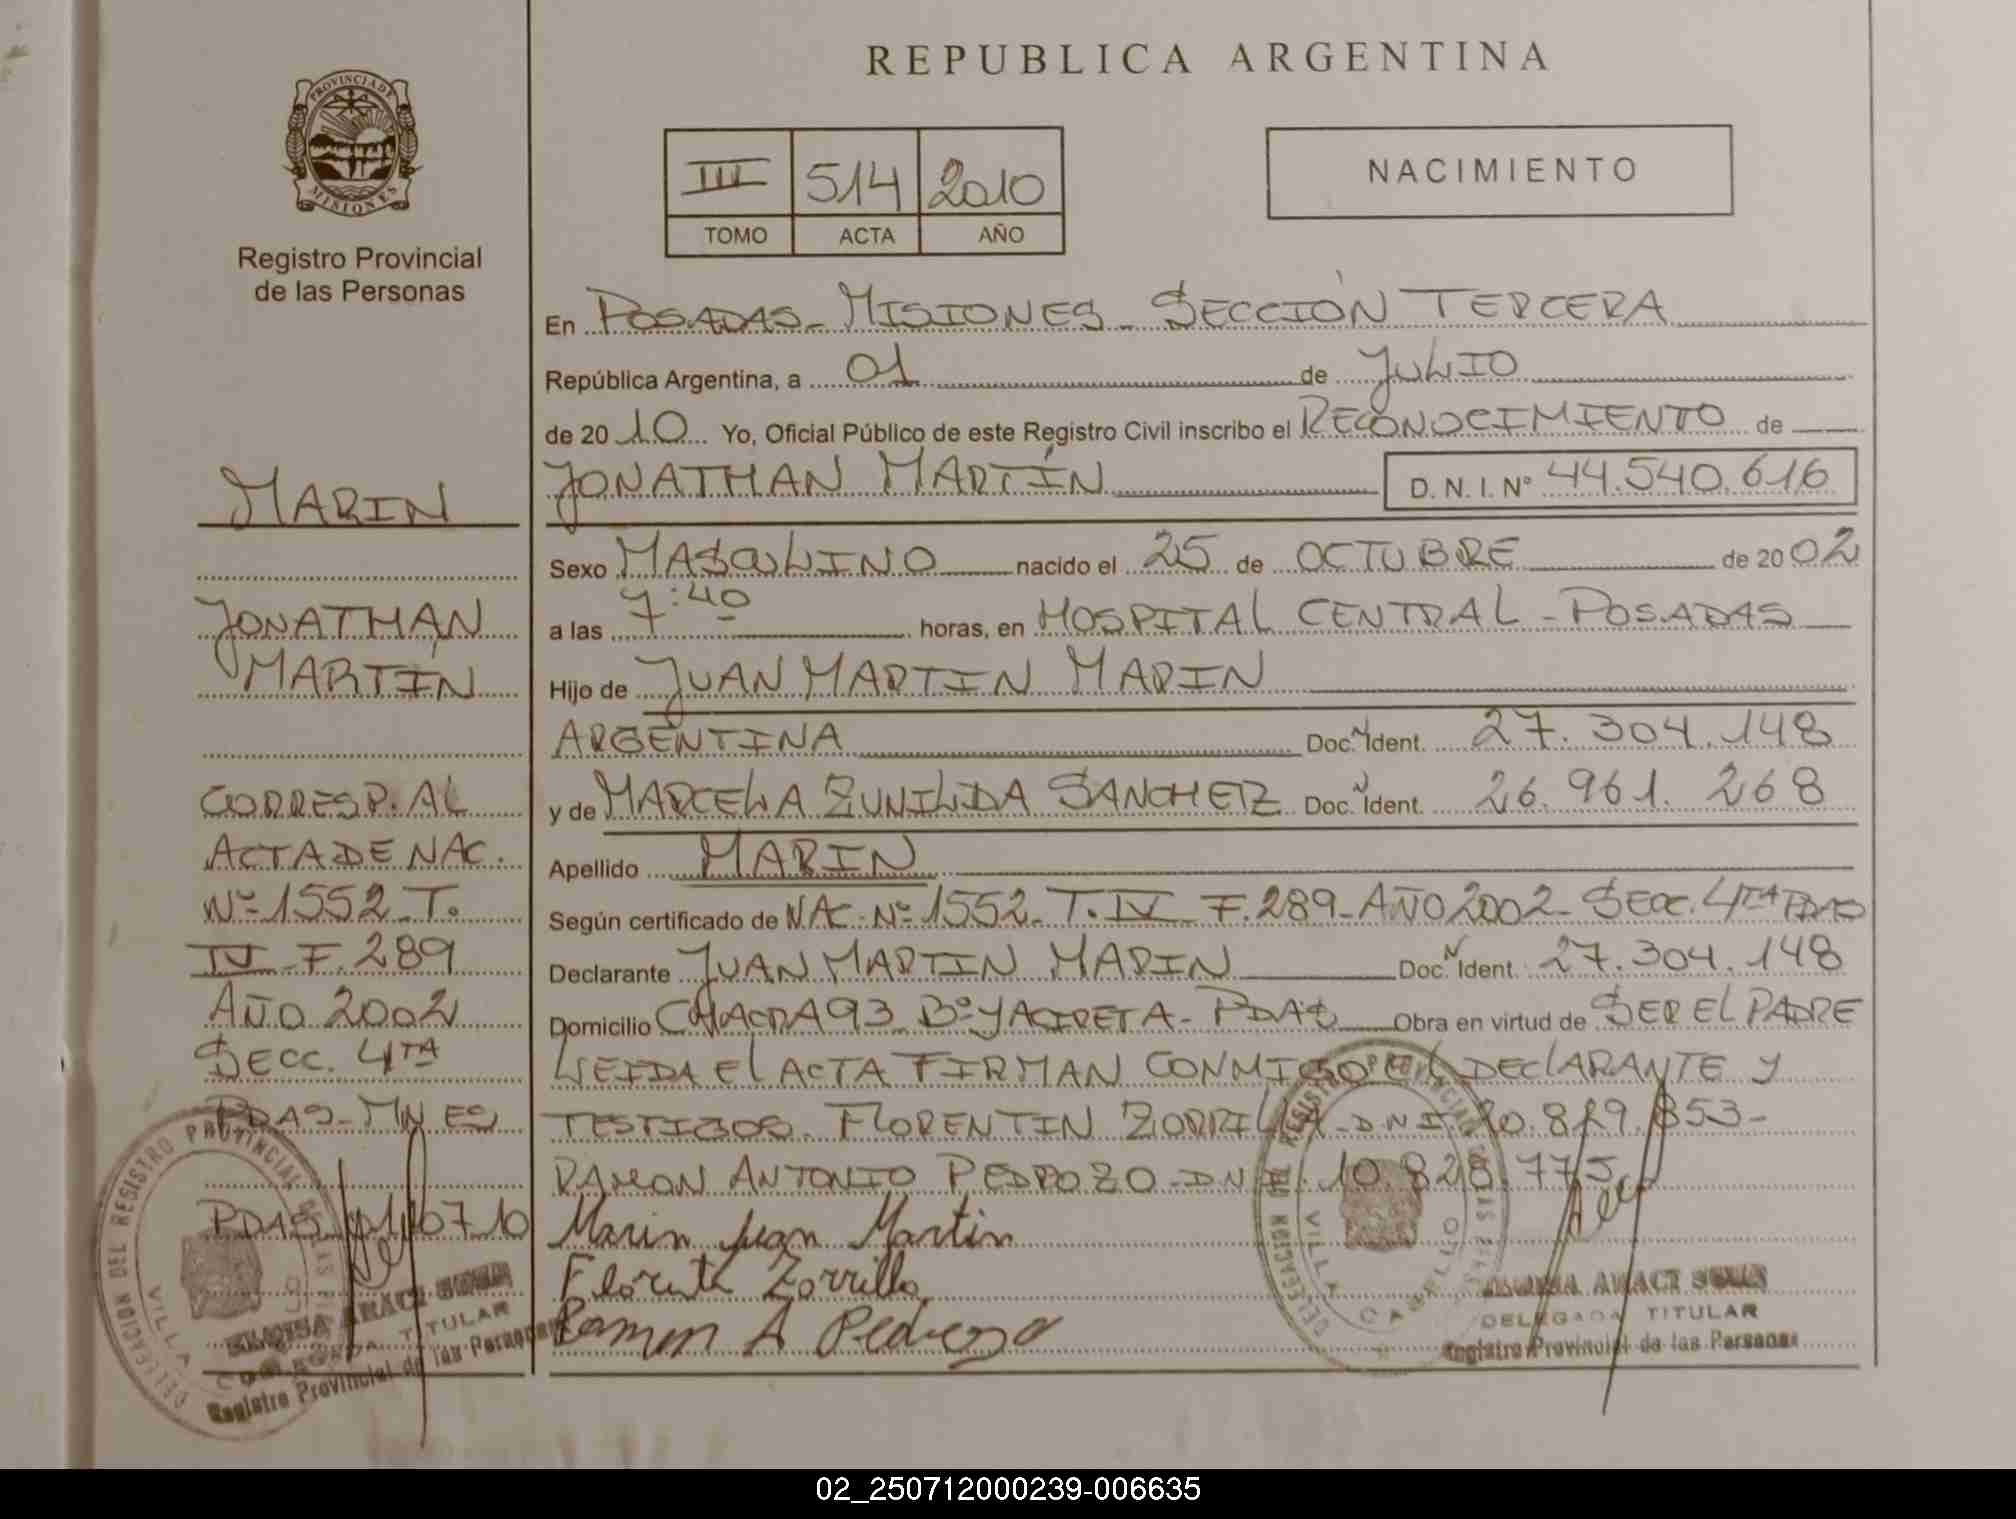 REPUBLICA ARGENTINA
PROVINCIA DE
MISIONES
Registro Provincial
de las Personas
III 514 2010
TOMO ACTA AÑO
NACIMIENTO
En POSADAS - MISIONES - SECCIÓN TERCERA
República Argentina, a 01 de JULIO
de 2010 Yo, Oficial Público de este Registro Civil inscribo el RECONOCIMIENTO de
JONATHAN MARTÍN D. N. I. Nº 44.540.616
Sexo MASCULINO nacido el 25 de OCTUBRE de 2002
a las 7:40 horas, en HOSPITAL CENTRAL - POSADAS
Hijo de JUAN MARTIN MARIN
ARGENTINA Doc. Ident. 27.304.148
y de MARCELA ZUNILDA SANCHEZ Doc. Ident. 26.961.268
Apellido MARIN
Según certificado de NAC. Nº 1552 - T. IV - F. 289 - AÑO 2002 - SECC. 4TA PDAS
Declarante JUAN MARTIN MARIN Doc. Ident. 27.304.148
Domicilio CHACRA 93 Bº YACIRETA - PDAS Obra en virtud de SER EL PADRE
LEIDA EL ACTA FIRMAN CONMIGO EL DECLARANTE Y
TESTIGOS. FLORENTIN ZORRILLA - D.N.I. 20.829.853 -
RAMON ANTONIO PEDROZO - D.N.I. 10.828.775
Marin Juan Martin
Zorrilla
Ramon A Pedrozo
MARIN
JONATHAN
MARTÍN
CORRESP. AL
ACTA DE NAC.
Nº 1552 - T.
IV - F. 289
AÑO 2002
SECC. 4TA
PDAS - MNES
PDAS 07-10
DELEGACION DEL REGISTRO PROVINCIAL DE LAS
VILLA CABELLO
ARACI
DELEGADA TITULAR
Registro Provincial de las Personas
DELEGACION DEL REGISTRO PROVINCIAL DE LAS
VILLA CABELLO
ARACI
DELEGADA TITULAR
Registro Provincial de las Personas
02_250712000239-006635